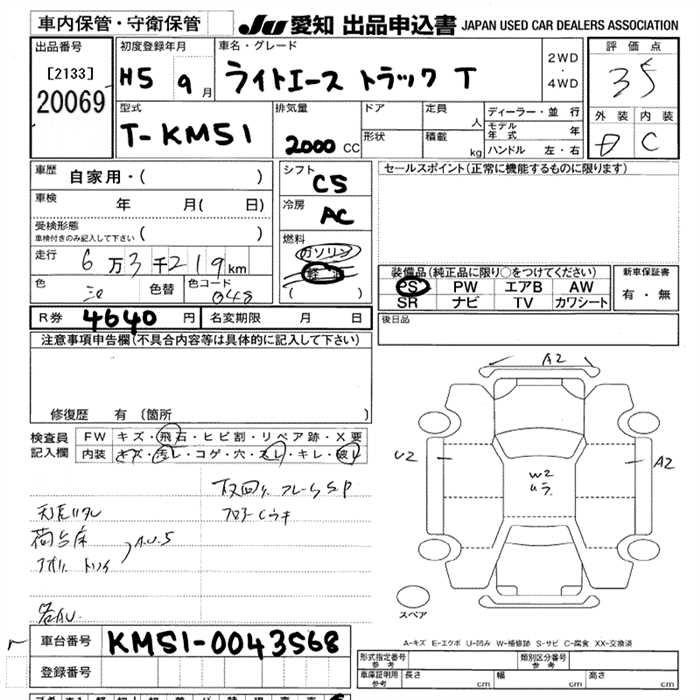 車内保管・守衛保管 JU 愛知 出品申込書 JAPAN USED CAR DEALERS ASSOCIATION
出品番号 [2133] 20069
初度登録年月 H5 9月
車名・グレード ライトエース トラック T
2WD・4WD
評価点 35
外装 内装 C
型式 T-KM51
排気量 2000 CC
ドア 形状
定員 人 積載 kg
ディーラー・並行
モデル年式 年
ハンドル 左・右
車歴 自家用・( )
車検 年 月( 日)
受検形態 車検付きのみ記入して下さい ( )
走行 6万3千219km
色 色替 色コード 048
シフト C5
冷房 AC
燃料 ガソリン 軽油 ( )
セールスポイント(正常に機能するものに限ります)
装備品(純正品に限り〇をつけてください)
PS PW エアB AW
SR ナビ TV カワシート
新車保証書 有・無
R券 4640 円 名変期限 月 日
後日品
注意事項申告欄(不具合内容等は具体的に記入して下さい)
修復歴 有 (箇所
検査員記入欄
FW キズ・飛石・ヒビ割・リペア跡・X要
内装 キズ・汚レ・コゲ・穴・スレ・キレ・破レ
A2
U2
W2
A2
スペア
A-キズ E-エクボ U-凹み W-補修跡 S-サビ C-腐食 XX-交換済
車台番号 KM51-0043568
登録番号
形式指定番号 参考 類別区分番号 参考
車庫証明用 参考 長さ cm 幅 cm 高さ cm